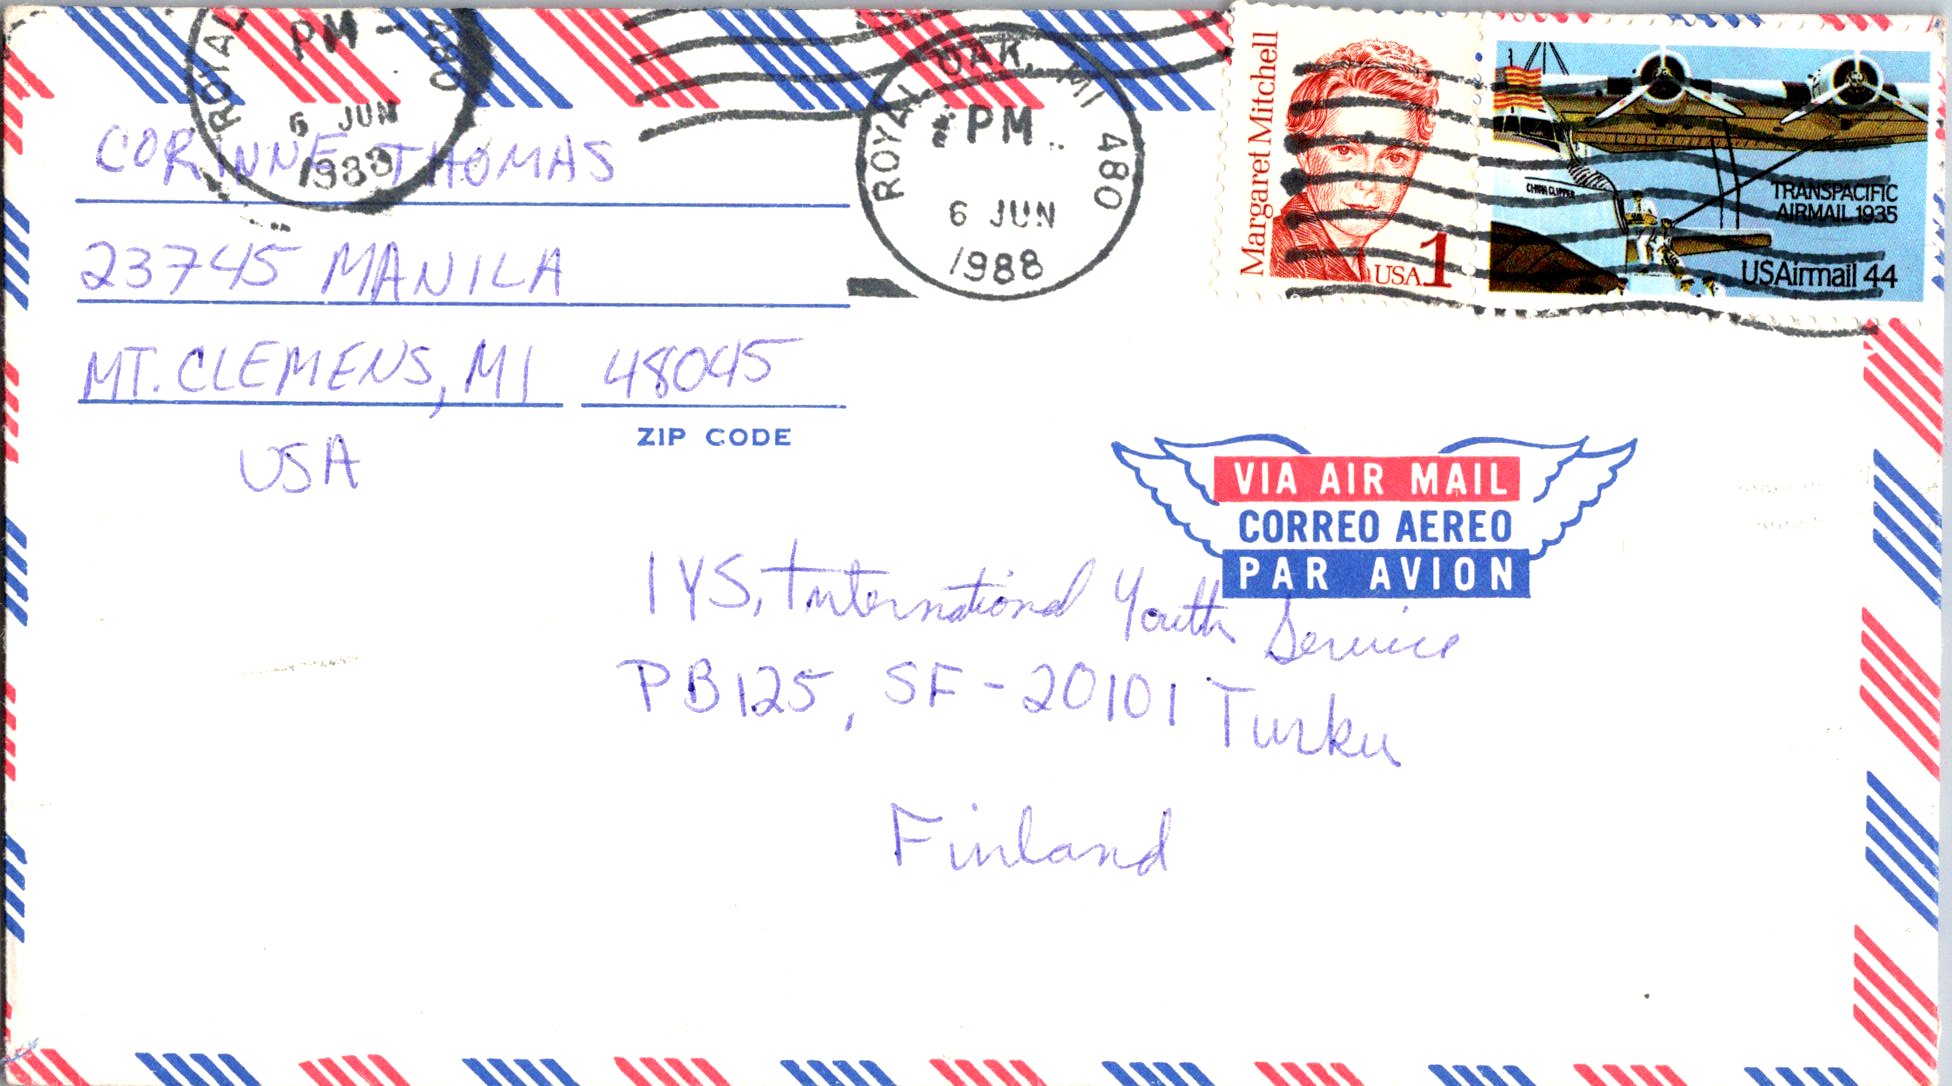 ROYAL
PM
480
6 JUN
1988
ROYAL OAK, MI 480
PM
6 JUN
1988
Margaret Mitchell
USA 1
CHINA CLIPPER
TRANSPACIFIC
AIRMAIL 1935
USAirmail 44
CORINNE THOMAS
23745 MANILA
MT. CLEMENS, MI 48045
ZIP CODE
USA
VIA AIR MAIL
CORREO AEREO
PAR AVION
IYS, International Youth Service
PB125, SF-20101 Turku
Finland